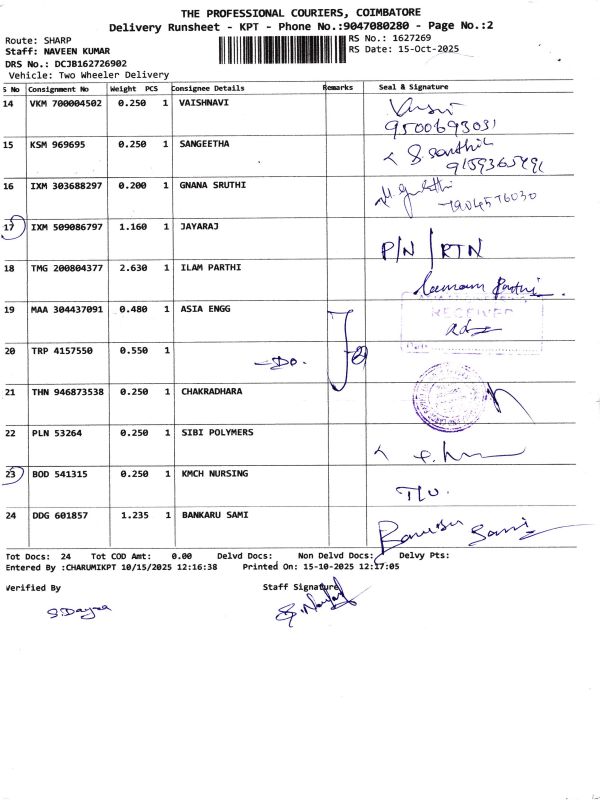 THE PROFESSIONAL COURIERS, COIMBATORE
Delivery Runsheet - KPT - Phone No.:9047080280 - Page No.:2
Route: SHARP
RS No.: 1627269
Staff: NAVEEN KUMAR
RS Date: 15-Oct-2025
DRS No.: DCJB162726902
Vehicle: Two Wheeler Delivery
S No Consignment No Weight PCS Consignee Details Remarks Seal & Signature
14 VKM 700004502 0.250 1 VAISHNAVI
9500693031
15 KSM 969695 0.250 1 SANGEETHA
9159365491
16 IXM 303688297 0.200 1 GNANA SRUTHI
7904576030
17 IXM 509086797 1.160 1 JAYARAJ P/N / RTN
18 TMG 200804377 2.630 1 ILAM PARTHI
19 MAA 304437091 0.480 1 ASIA ENGG
RECEIVED
Date
20 TRP 4157550 0.550 1 -Do. 2
21 THN 946873538 0.250 1 CHAKRADHARA
22 PLN 53264 0.250 1 SIBI POLYMERS
23 BOD 541315 0.250 1 KMCH NURSING
24 DDG 601857 1.235 1 BANKARU SAMI
Tot Docs: 24 Tot COD Amt: 0.00 Delvd Docs: Non Delvd Docs: Delvy Pts:
Entered By :CHARUMIKPT 10/15/2025 12:16:38 Printed On: 15-10-2025 12:17:05
Verified By Staff Signature